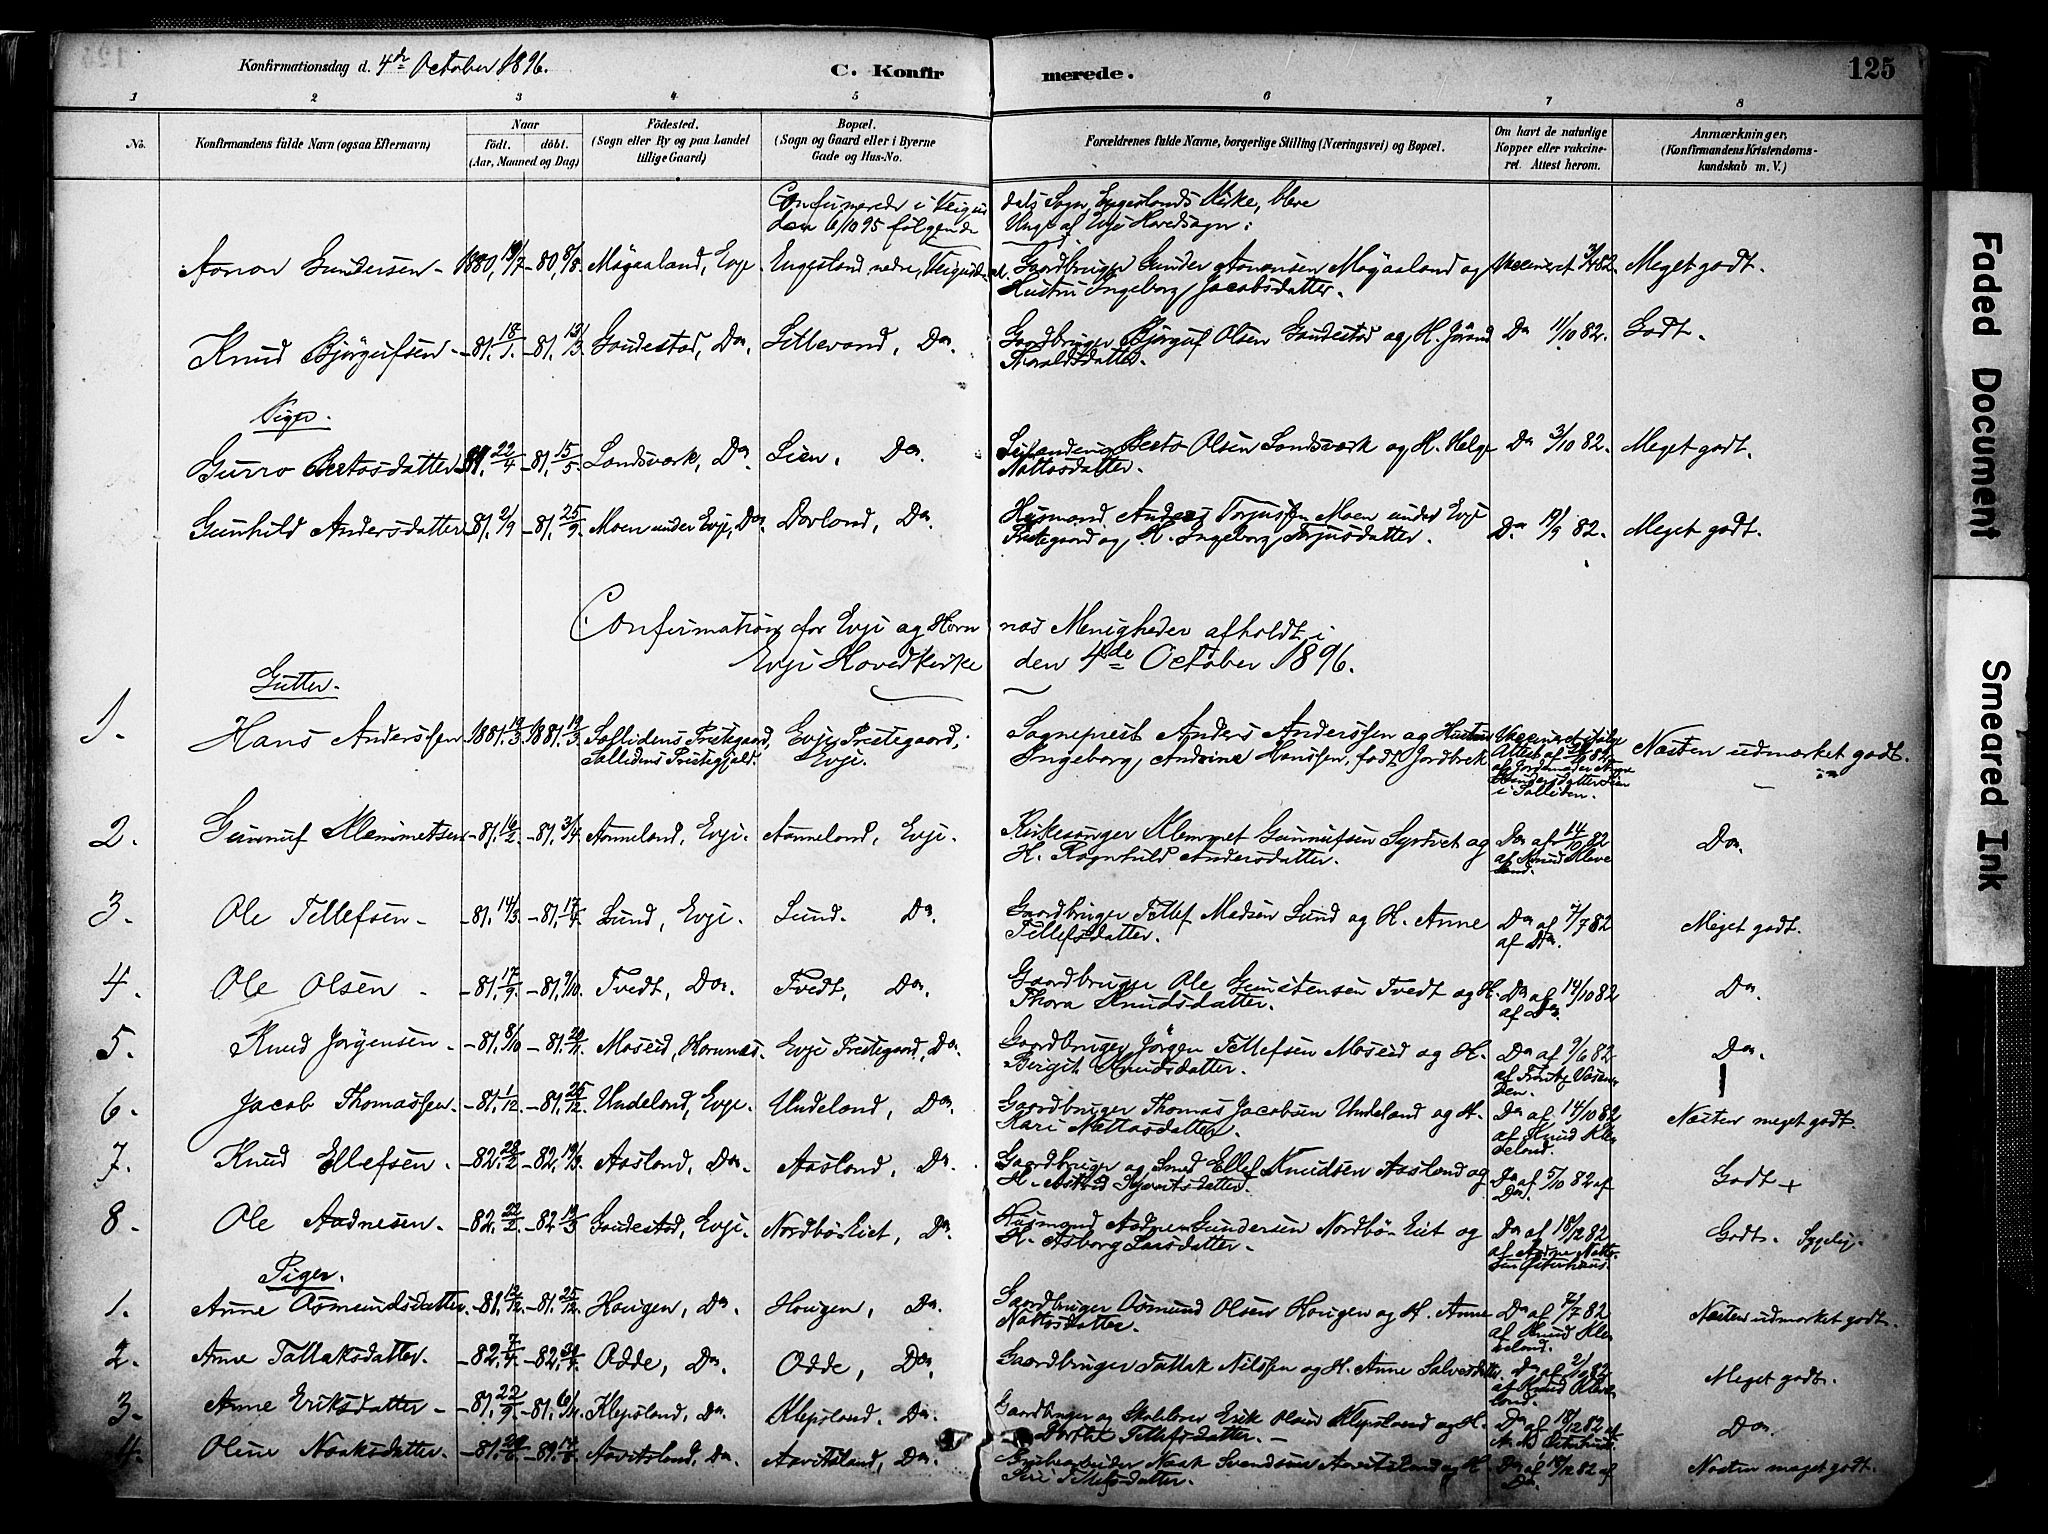 Konfirmationsdag d. 4de October 1896.
C. Konfirmerede.
125
1 2 3 4 5 6 7 8
No.
Konfirmandens fulde Navn (ogsaa Efternavn)
Naar
födt. döbt.
(Aar, Maaned og Dag)
Födested.
(Sogn eller By og paa Landet
tillige Gaard)
Bopæl.
(Sogn og Gaard eller i Byerne
Gade og Hus-No.
Forældrenes fulde Navne, borgerlige Stilling (Næringsvei) og Bopæl.
Om havt de naturlige
Kopper eller vakcine-
ret. Attest herom.
Anmærkninger,
(Konfirmandens Kristendoms-
kundskab m. V.)
Confirmerede i Veigusdals Sogn, Engeslands Kirke, bleve
den 6/10 95 følgende Unge af Evje Hovedsogn:
Aanon Gundersen - 1880, 19/7 - 80, 8/8 Mögaaland, Evje. Engesland nedre, Gaardbruger Gunder Aanonsen Mögaaland og Vaccineret 82. Meget godt.
Hustru Ingeborg Jacobsdatter.
Knud Björgufsen - 81, 18/1. - 81, 13/3 Gaudestad, Do. Lillevand, Do. Gaardbruger Björguf Olsen Gaudestad og H. Jörand Do 11/10 82. Godt.
Thoraldsdatter.
Piger.
Gurro Bertosdatter 81, 22/4 - 81, 15/5 Landsverk, Do. Lien, Do. Olsen Landsverk og H. Helge Do 3/10 82. Meget godt.
Nottosdatter.
Gunhild Andersdatter 81, 2/9 - 81, 25/9. Moen under Evje, Do. Dorland, Do. Husmand Anders Torjusen Moen under Evje Do. 19/9 82. Meget godt.
Prestegaard og H. Ingeborg Torjusdatter.
Confirmation for Evje og Hornnæs Menigheder afholdt i
Evje Hovedkirke den 4de October 1896.
Gutter.
1. Hans Anderssen 1881, 19/3. 1881, 19/3. Prestegaard, Evje Prestegaard, Sognepræst Anders Anderssen og Hustru Næsten udmærket godt.
Prestegjeld. Evje. Ingeborg Andrine Hanssen, født Jordbrek
2. Gunnuf Klemmetsen - 81, 16/2. - 81, 3/4. Aaneland, Evje. Aaneland, Evje. Kirkesanger Klemmet Gunnufsen Syrtveit og Do af 14/10 82 Do.
H. Ragnhild Andersdatter. af Knud Kleveland.
3. Ole Tellefsen - 81, 14/3. - 81, 17/4. Lund, Evje. Lund. Do. Gaardbruger Tellef Madsen Lund og H. Anne Do af 7/7 82 Meget godt.
Tellefsdatter. af Do.
4. Ole Olsen - 81, 17/9. - 81, 9/10 Tvedt, Do. Tvedt, Do. Gaardbruger Ole Gunstensen Tvedt og H. Do af 14/10 82 Do.
Thora Knudsdatter. af Do.
5. Knud Jörgensen - 81, 8/10 - 81, Moseid, Hornnæs. Evje Prestegaard, Do. Gaardbruger Jörgen Tellefsen Moseid og H. Do af 9/6 82 Do.
Birgit Knudsdatter.
6. Jacob Thomassen - 81, 1/12. - 81, 25/12. Undeland, Evje. Undeland, Do. Gaardbruger Thomas Jacobsen Undeland og H. Do af 14/10 82 Næsten meget godt.
Kari Nottosdatter. af Knud Kleveland.
7. Knud Ellefsen - 82, - 82, 19/3. Aasland, Do. Aasland, Do. Gaardbruger og Smed Ellef Knudsen Aasland og Do af 5/10 82 af Godt
H. Do.
8. Ole Aadnesen. - 82, 22/2. - 82, 19/3. Gaudestad, Evje. Nordbö Eiet, Do. Husmand Aadne Gundersen Nordbö Eiet og Do af 18/12 82 Godt. Sygelig.
H. Asborg Larsdatter.
Piger.
1. Anne Osmundsdatter. - 81, 12/12. - 81, 25/12. Hougen, Do. Hougen, Do. Gaardbruger Osmund Olsen Hougen og H. Anne Do af 7/7 82 Næsten udmærket godt.
Nottosdatter. af Knud Kleveland.
2. Anne Tallaksdatter. - 82, 7/4. - 82, Odde, Do. Odde, Do. Gaardbruger Tallak Nilssen og H. Anne Salvesdatter. Do af 2/10 82 Meget godt.
af Knud Kleveland.
3. Anne Eriksdatter - 81, 22/9. - 81, 6/11. Klepsland, Do. Klepsland. Do. Gaardbruger og Skolelærer Erik Olsen Klepsland og H. Do af 18/12 82 af Do.
Dorthe Tellefsdatter. -
4. Oline Noaksdatter. - 81, - 81, Aavitsland, Do. Aavitsland, Do. Noak Svendsen Aavitsland og H. Do af 18/12 82 af Næsten meget godt.
Siri Tellefsdatter. Do.
Faded Document
Smeared Ink